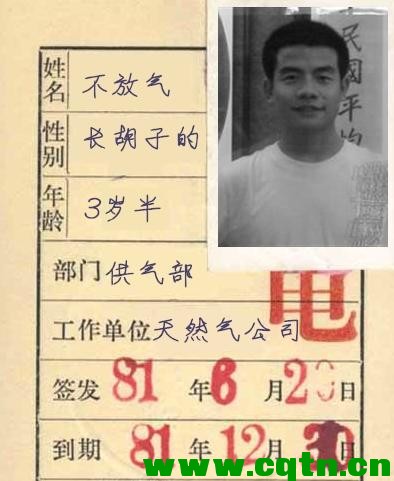 姓名 不放气
性别 长胡子的
年龄 3岁半
部门 供气部
工作单位 天然气公司
签发 81 年 6 月 20 日
到期 81 年 12 月 30 日
民國平均
电
www.cqtn.cn